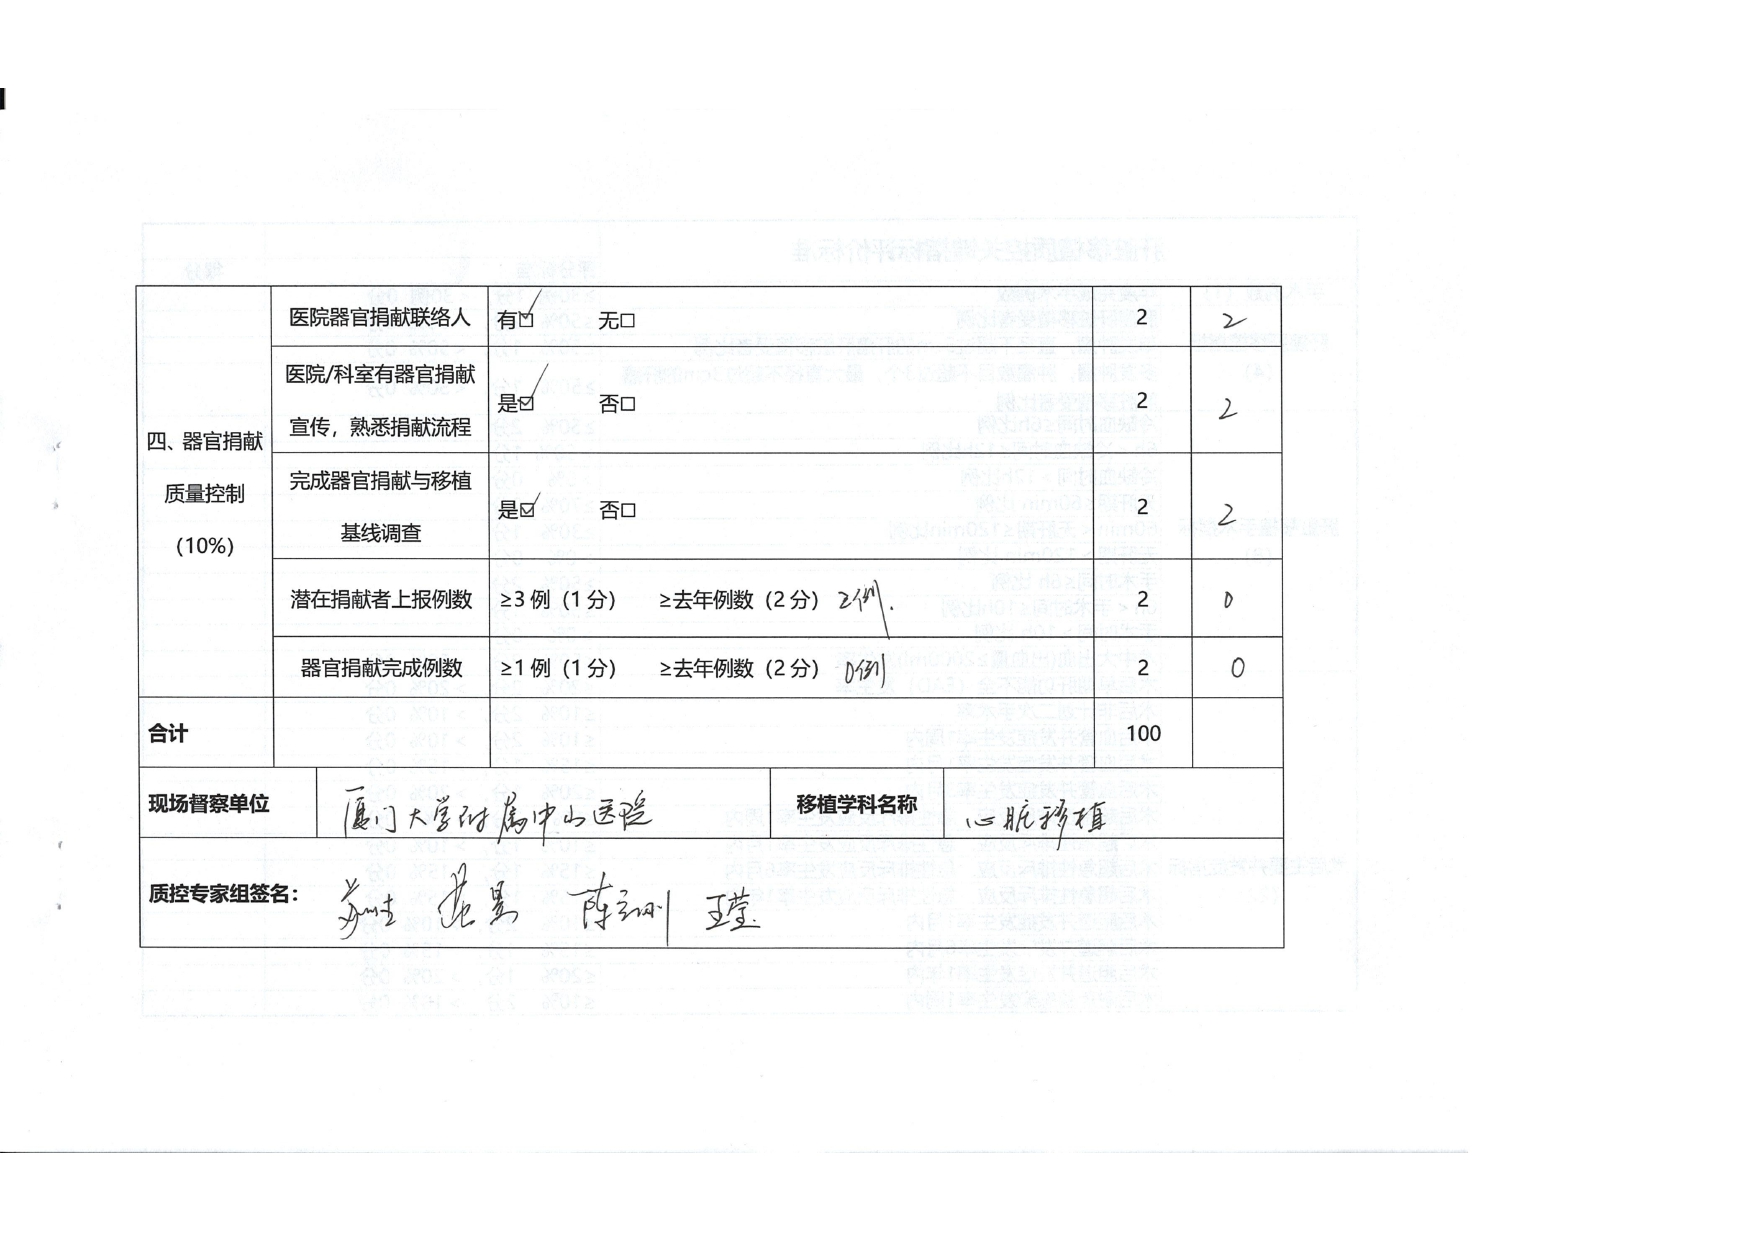 医院器官捐献联络人 有☑ 无□ 2 2
医院/科室有器官捐献
宣传，熟悉捐献流程
是☑ 否□ 2 2
四、器官捐献
质量控制
（10%）
完成器官捐献与移植
基线调查
是☑ 否□ 2 2
潜在捐献者上报例数 ≥3 例（1 分） ≥去年例数（2 分） 2例. 2 0
器官捐献完成例数 ≥1 例（1 分） ≥去年例数（2 分） 0例 2 0
合计 100
现场督察单位 厦门大学附属中山医院 移植学科名称 心脏移植
质控专家组签名： 王莹